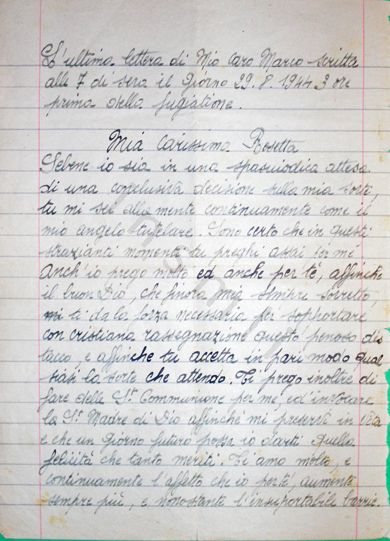 L'ultima lettera di Mio Caro Marco scritta
alle 7 di sera il Giorno 29.8.1944 3 ore
prima della fugiatione.
Mia Carissima Rosetta
Sebene io sia in una spasmodica attesa
di una conclusiva decisione sulla mia sorte,
tu mi sei alla mente continuamente come il
mio angelo tutelare. Sono certo che in questi
strazianti momenti tu preghi assai per me
Anch'io prego molto ed anche per te, affinche
il buon Dio, che finora mi a sempre sorretto
ti dia la forza necessaria per sopportare
con cristiana rassegnazione questo penoso dis
tacco, e affinche tu accetta in pari modo qual
siasi la sorte che attendo. Ti prego inoltre di
fare delle S. Communione per me, ed invocare
la S. Madre di Dio affinche mi preservi in vita
e che un giorno futuro possa io darti quella
felicità che tanto meriti. Ti amo molto, e
continuamente l'affetto che io porto, aumenta
sempre più, e nonostante l'insuportabili barrie.